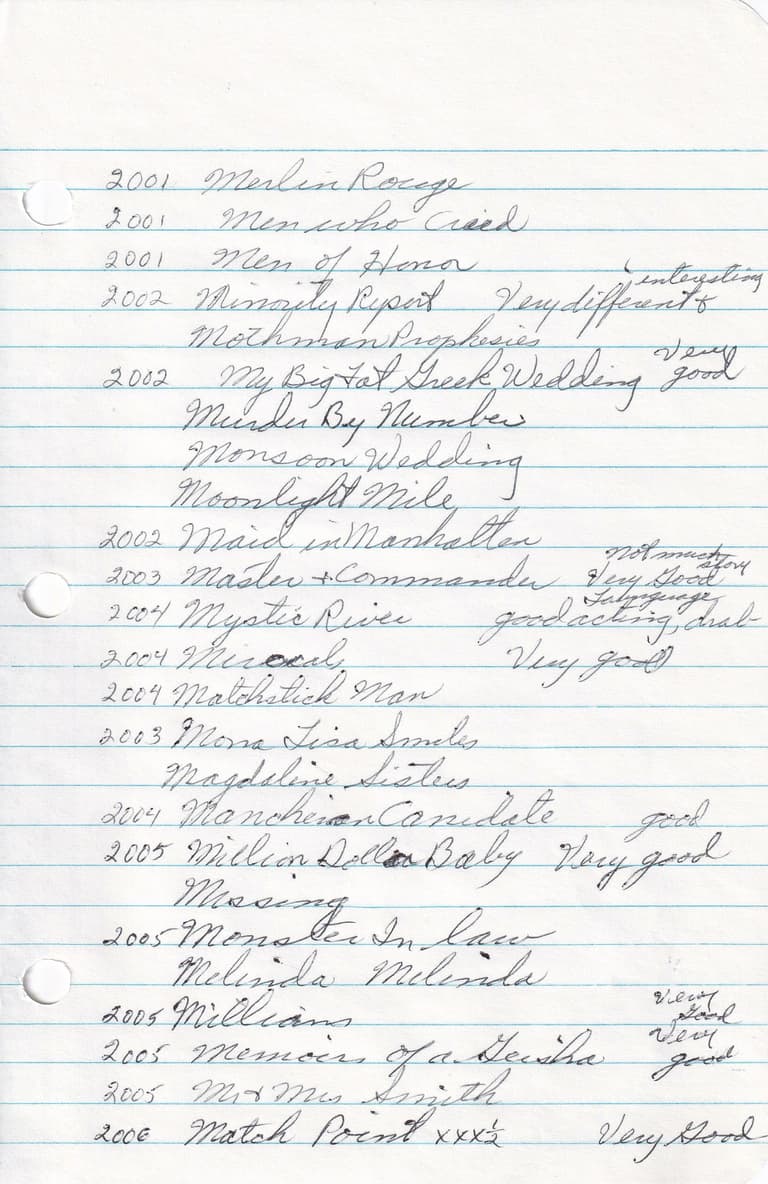 2001 Merlin Rouge
2001 Men who Cried
2001 Men of Honor
interesting
2002 Minority Report Very different &
Mothman Prophesies
Very
2002 My Big Fat Greek Wedding good
Murder By Number
Monsoon Wedding
Moonlight Mile
2002 Maid in Manhatten
Not much story
2003 Master + Commander Very Good
Language
2004 Mystic River good acting, drab
2004 Miracal Very good
2004 Matchstick Man
2003 Mona Lisa Smiles
Magdaline Sisters
2004 Canidate good
2005 Million Dollar Baby Very good
Missing
2005 Monster In law
Melinda Melinda
Very
2005 Millians Good
Very
2005 Memoirs of a Geisha good
2005 Mr & Mrs Smith
2006 Match Point xxx½ Very Good